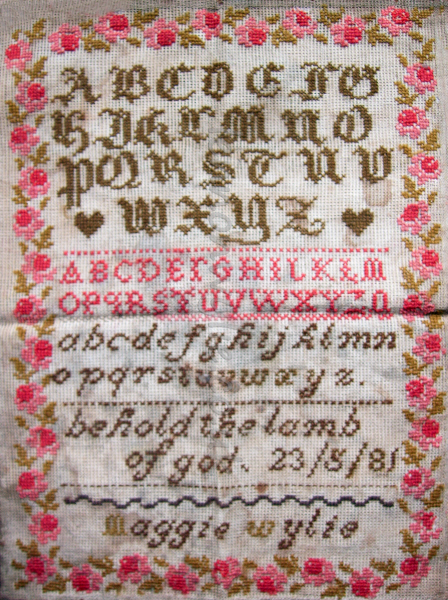 A B C D E F G
H I K L M N O
P Q R S T U V
W X Y Z
A B C D E F G H I L K L M
O P Q R S T U V W X Y Z
a b c d e f g h i j k l m n
o p q r s t u v w x y z.
behold the lamb
of god. 23/5/81
Maggie Wylie